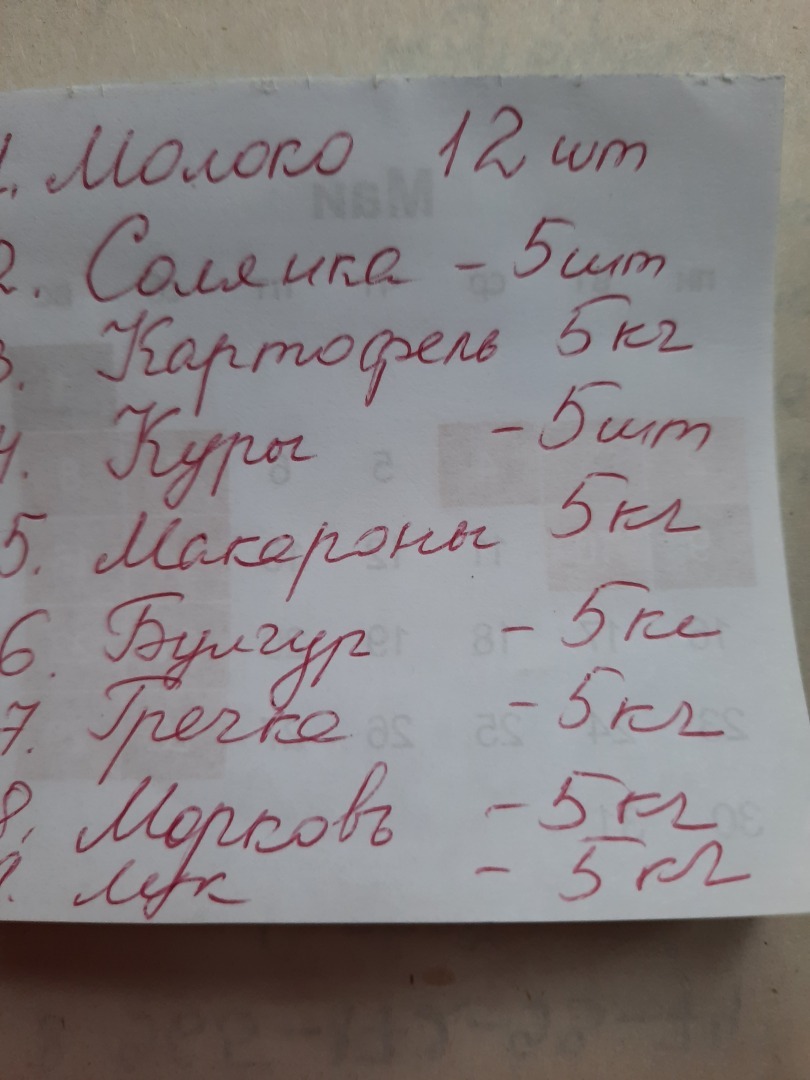 1. Молоко 12 шт
2. Солянка - 5шт
3. Картофель 5кг
4. Куры - 5шт
5. Макароны 5кг
6. Булгур - 5кг
7. Гречка - 5кг
8. Морковь - 5кг
9. Лук - 5кг